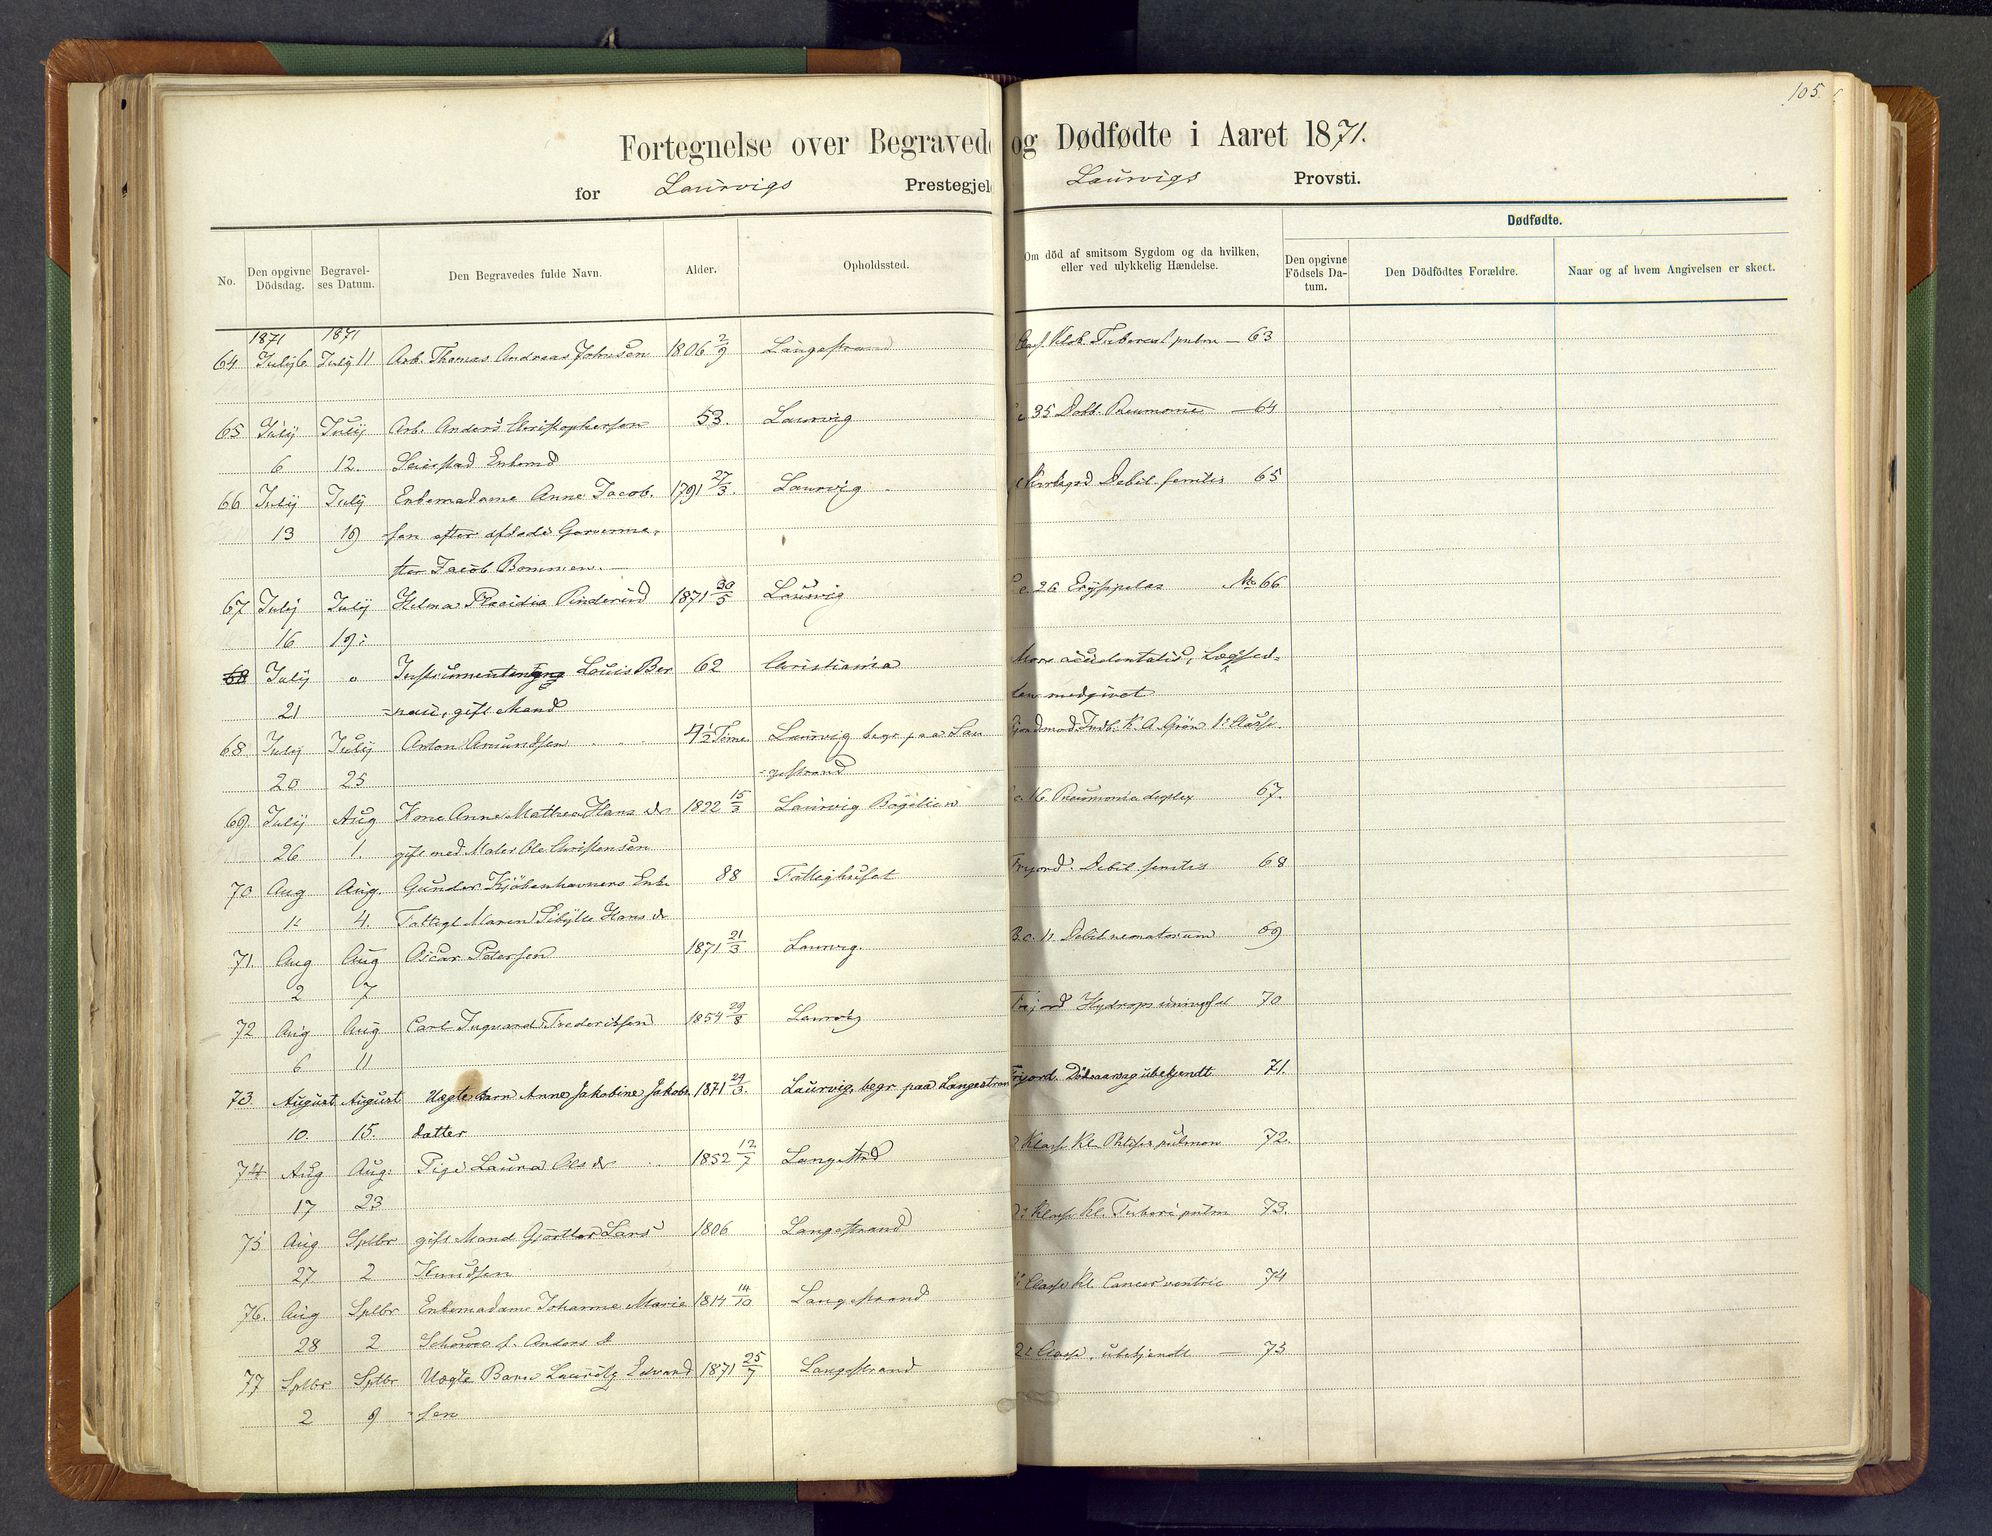 105.
Fortegnelse over Begravede og Dødfødte i Aaret 1871.
for Laurvigs Prestegjeld Laurvigs Provsti.
No. Den opgivne Dödsdag. Begravelses Datum. Den Begravedes fulde Navn. Alder. Opholdssted. Om död af smitsom Sygdom og da hvilken, eller ved ulykkelig Hændelse. Dødfødte. Den opgivne Födsels Datum. Den Dödfödtes Forældre. Naar og af hvem Angivelsen er skeet.
1871 1871
64 July 6. July 11 Arb. Thomas Andreas Johnsen 1806 2/9 Langestrand Tubercul pulm — 63
65 July July Arb. Anders Christophersen 53. Laurvig 35 Dobb. Pneumonie — 64
6 12. Seierstad Enkemd
66 July July Enkemadame Anne Jacob. 1791 27/3. Laurvig Debil. senilis 65
13 19 sen efter afdøde Garverme,
ster Jacob Bommen. —
67 July July Helma Placidia Pinderud 1871 30/5 Laurvig 26 Erysipelas No 66
16 19:
68 July " Louis Ber 62 Christiania Mors accidentalis, Lægesed-
21 =nau, gift Mand len medgivet
68. July July Anton Amundsen 4 1/2 Time Laurvig begr. paa Lan K. A. Grøn 1ste Classe.
20 25 =gestrand
69. July Aug Kone Anne Mathea Hans dr 1822 15/3 Laurvig Bøgelien 16 Pneumonia duplex 67.
26 1. gift med Maler Ole Christensen
70 Aug Aug. Gunder Kjöbenhavners Enke 88 Fattighuset Frijord. Debil. senilis 68
1. 4. Fattigl. Maren Sibylle Hans dr
71. Aug Aug Oscar Petersen 1871 21/3 Laurvig. B. c. 11 Debil. neonatorum 69
2 7
72 Aug Aug Carl Ingvard Frederiksen 1854 29/8 Laurvig Frijord Hydrops 70
6 11
73. August August Uægte barn Anne Jakobine Jakobs 1871 29/3. Laurvig, begr. paa Langestran Frijord. Dödsaarsag ubekjendt. 71.
10. 15. datter
74 Aug Aug. Pige Laura Ols dr 1852 12/7 Langestrd Klasse Kl. Phtisis pulmon 72.
17 23
75 Aug Sptbr gift Mand Gjørtler Lars 1806 Langestrand Klasse Kl. Tuberc pulm 73.
27. 2 Knudsen
76. Aug Sptbr Enkemadame Johanne Marie 1814 14/10 Langestrand Classe Kl. Cancer ventric 74
28 2 f. Anders d
77 Sptbr Sptbr Uægte Barn Lauritz Edvard 1871 25/7 Langestrand 2: Classe, ubekjendt — 75
2 9 =sen